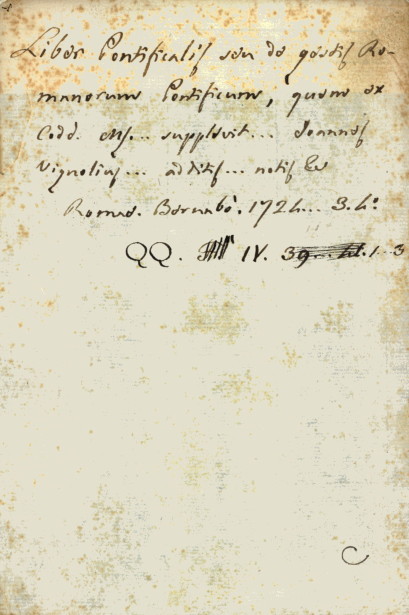 Liber Pontificalis seu de gestis Ro-
manorum Pontificum, quem ex
Codd. MS... supplevit... Joannes
Vignolius... additis... notis &c
Romae. Barnabò. 1724... 3. 4°
QQ. IV. 39 1..3